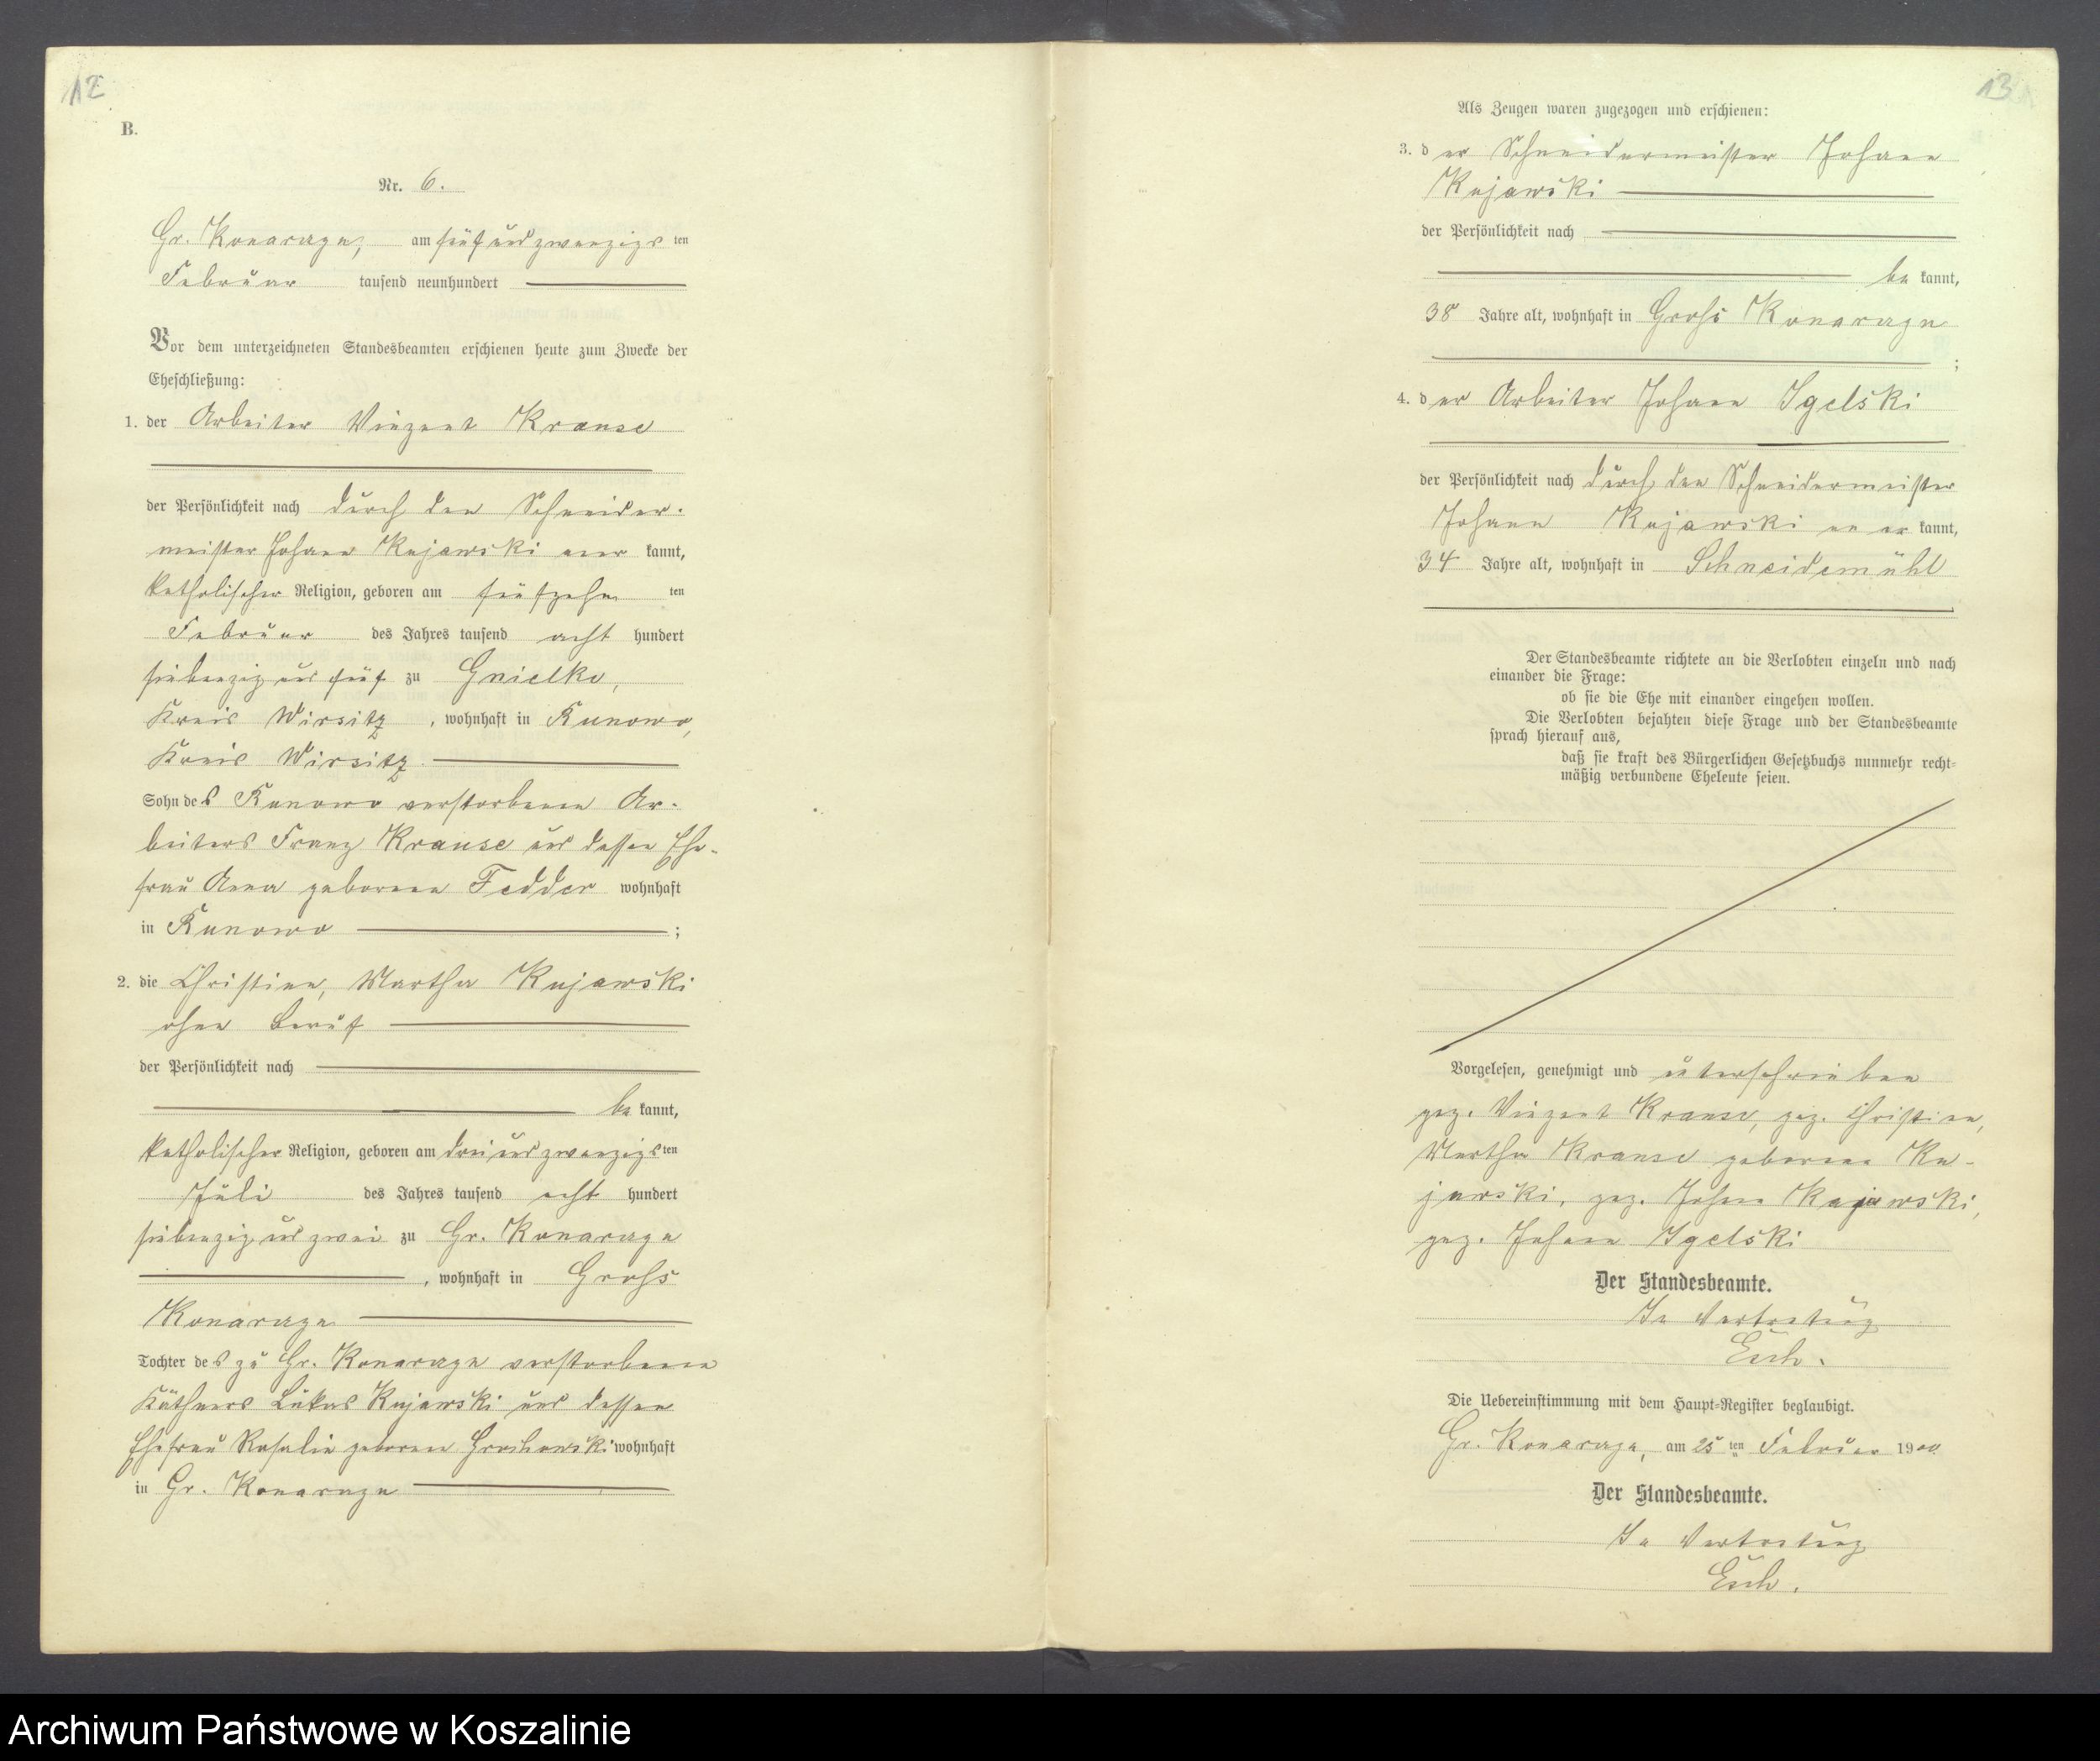 12
B.
Nr. 6.
Gr. Konarczyn, am fünfundzwanzigsten
Februar tausend neunhundert
Vor dem unterzeichneten Standesbeamten erschienen heute zum Zwecke der
Eheschließung:
1. der Arbeiter Vinzent Krause
der Persönlichkeit nach durch den Schneider-
meister Johann Kujawski aner kannt,
katholischer Religion, geboren am fünfzehn ten
Februar des Jahres tausend acht hundert
siebenzig und fünf zu
Kreis Wirsitz, wohnhaft in Runowo,
Kreis Wirsitz
Sohn des Runowo verstorbenen Ar-
beiters Franz Krause und dessen Ehe-
frau Anna geborenen Fedder wohnhaft
in Runowo ;
2. die Christine, Martha Kujawski
ohne Beruf
der Persönlichkeit nach
be kannt,
katholischer Religion, geboren am dreiundzwanzigsten
Juli des Jahres tausend acht hundert
siebenzig und zwei zu Gr. Konarczyn
, wohnhaft in Gross
Konarczyn
Tochter des zu Gr. Konarczyn verstorbenen
Käthners Lukas Kujawski und dessen
Ehefrau Rosalie geborene wohnhaft
in Gr. Konarczyn
13
Als Zeugen waren zugezogen und erschienen:
3. der Schneidermeister Johann
Kujawski
der Persönlichkeit nach
be kannt,
38 Jahre alt, wohnhaft in Gross Konarczyn
;
4. der Arbeiter Johann Igelski
der Persönlichkeit nach durch den Schneidermeister
Johann Kujawski an er kannt,
34 Jahre alt, wohnhaft in Schneidemühl
Der Standesbeamte richtete an die Verlobten einzeln und nach
einander die Frage:
ob sie die Ehe mit einander eingehen wollen.
Die Verlobten bejahten diese Frage und der Standesbeamte
sprach hierauf aus,
daß sie kraft des Bürgerlichen Gesetzbuchs nunmehr recht-
mäßig verbundene Eheleute seien.
Vorgelesen, genehmigt und unterschrieben
gez. Vinzent Krause, gez. Christine,
Martha Krause geborene Ku-
jawski, gez. Johann Kujawski,
gez. Johann Igelski
Der Standesbeamte.
In Vertretung
Die Uebereinstimmung mit dem Haupt-Register beglaubigt.
Gr. Konarczyn, am 25 ten Februar 1900
Der Standesbeamte.
In Vertretung
Archiwum Państwowe w Koszalinie